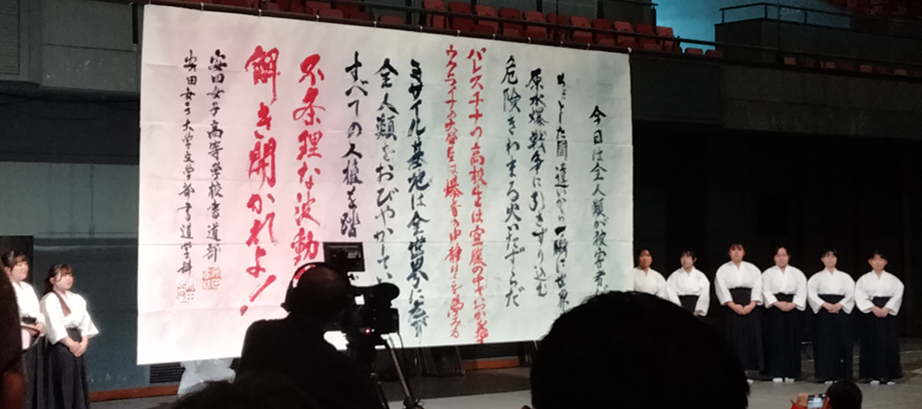 今日は全人類が被害者
ちょっとした間違いから一瞬に世界
原水爆戦争に引きずり込む
危険きわまる火いたずらだ
パレスチナの高校生は空腹の中
ウクライナの大学生は爆音の中
ミサイル基地は全世界に
全人類をおびやかしてい
すべての人権を踏
不条理な波動
解き開かれよ!
安田女子高等学校書道部
安田女子大学文学部書道学科